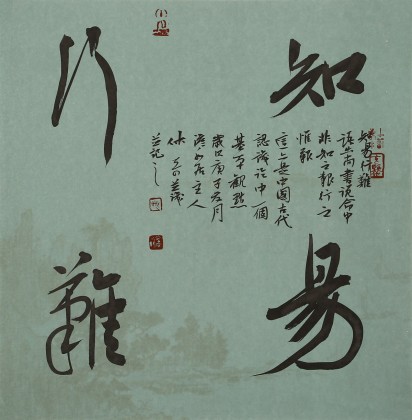 知易
行難
知易行難
語出尚書说命中
非知之艱行之
惟艱
這是中國古代
認識论中一個
基本觀點
歲次庚子友月
主人
並記之